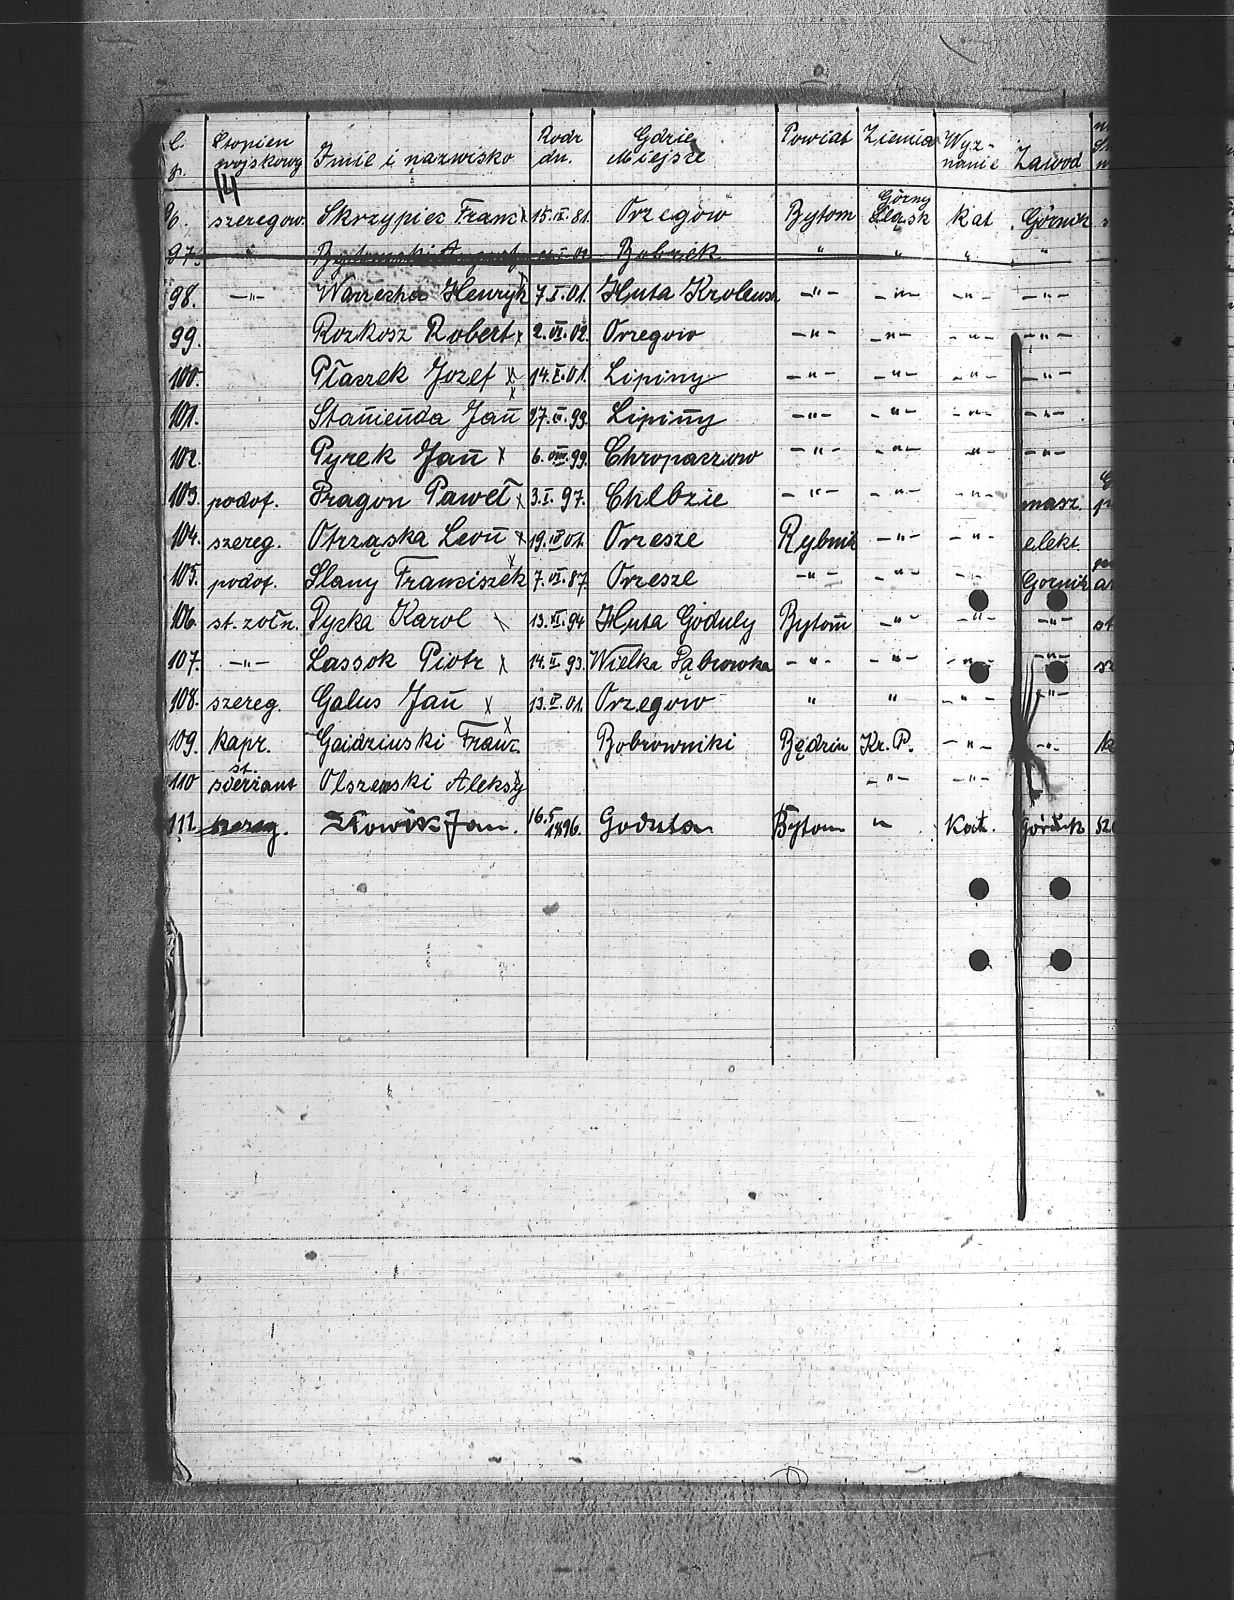 L. p. Stopien wojskowy Imie i nazwisko Rodz dn. Gdzie Miejsze Powiat Ziemia Wyznanie Zawod
14
96. szeregow. Skrzypiec Franc x 15.IX.81. Orzegów Bytom Górny Śląsk Kat Górnik
97. Bobrek " " " "
98. -"- Warzecha Henryk 7.X.01. Huta Krolewsk -"- -"- -"- -"-
99. Rozkosz Robert x 2.VII.02. Orzegow -"- -"- -"- -"-
100. Płaszek Jozef x 14.X.01. Lipiny -"- -"- -"- -"-
101. Stamenda Jan x 27.IX.99. Lipiny -"- -"- -"- -"-
102. Pyrek Jan x 6.VIII.99. Chropaczow -"- -"- -"- -"-
103. podof. Pragon Paweł x 3.I.97. Chebzie -"- -"- -"- masz.
104. szereg. Otrząska Leon x 19.IV.01. Orzesze Rybnik -"- -"- elekt.
105. podof. Slany Franciszek x 7.VI.87. Orzesze -"- -"- -"- Gornik
106. st. zołn. Pyzka Karol x 13.XI.94 Huta Goduly Bytom -"- -"- -"- st
107. -"- Lassok Piotr x 14.II.93. Wielka Dąbrowka -"- -"- -"- -"-
108. szereg. Galus Jan x 13.V.01. Orzegow " " -"- -"-
109. kapr. Gaidzinski Franc. x Bobrowniki Będzin Kr. P. -"- -"- k
110 st. sierżant Olszewski Aleksy x -"- -"-
111. szereg. Słowik Jan. 16.5 1896. Godula Bytom -"- Kat. Górnik sz